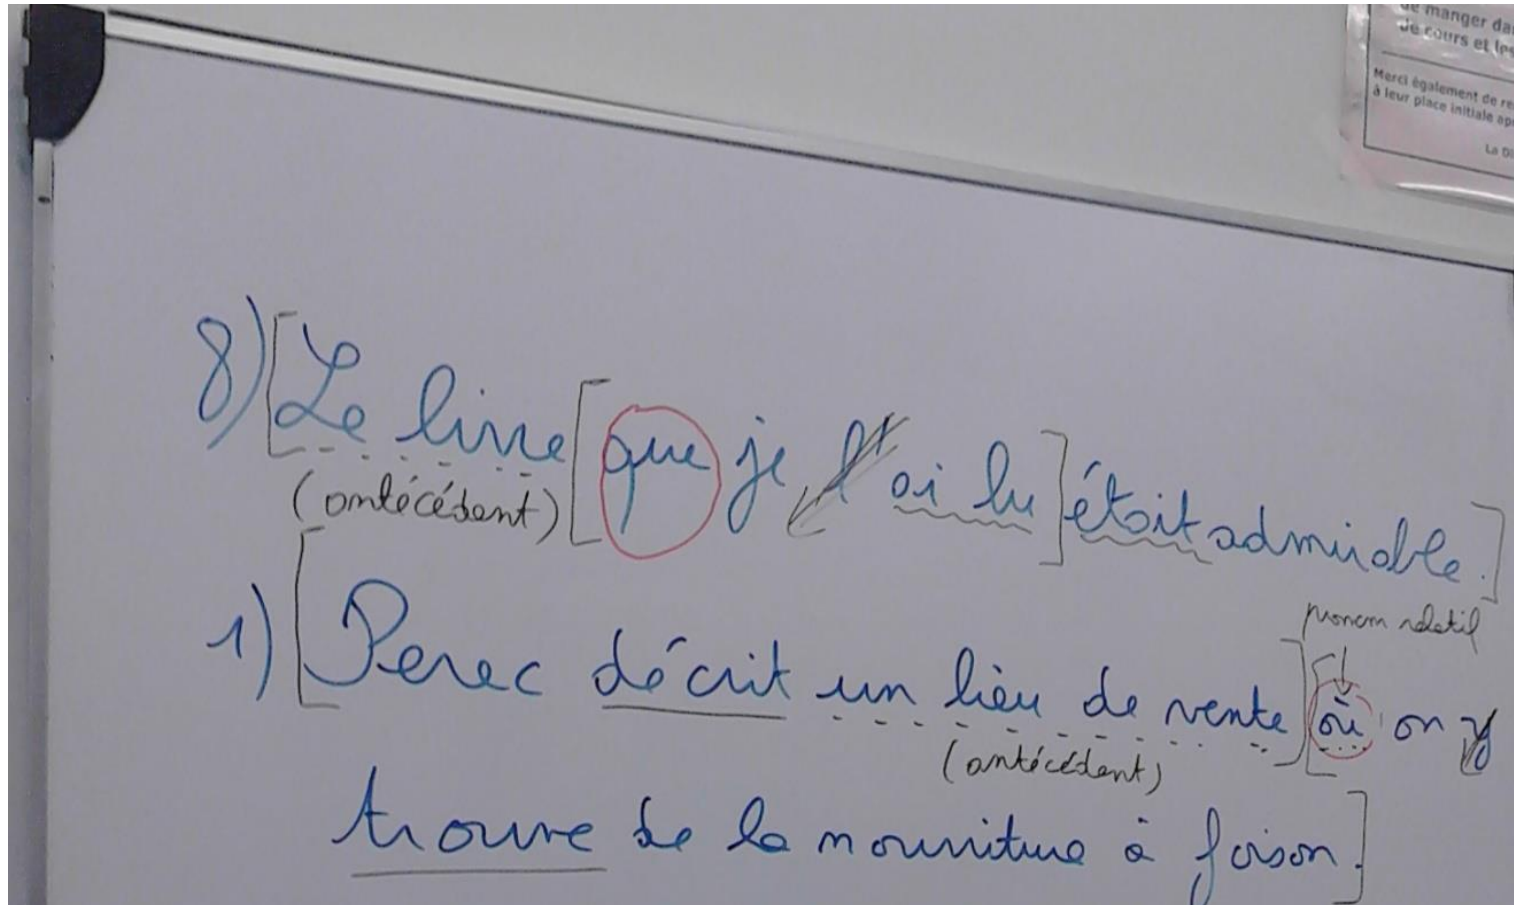 de manger da
de cours et les
Merci également de re
à leur place initiale ap
La Di
8) [Le livre [que je l' ai lu] était admirable.]
(antécédent)
pronom relatif
1) [Perec décrit un lieu de vente] [où on y
(antécédent)
trouve de la nourriture à foison.]